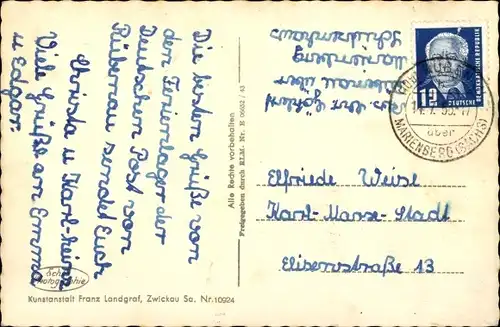 Die besten Grüße von
dem Ferienlager der
Deutschen Post von
Rübenau sendet Euch
Christa u. Karl-Heinz
Viele Grüße an Emma
u Edgar.
Echte
Photographie
Kunstanstalt Franz Landgraf, Zwickau Sa. Nr. 10924
Alle Rechte vorbehalten
Freigegeben durch RLM. Nr. E 06652 / 43
über
Marienberg
Schützenhaus
12
DEUTSCHE
DEMOKRATISCHE REPUBLIK
über
MARIENBERG (SACHS)
Elfriede Weise
Karl-Marx-Stadt
Elisenstraße 13